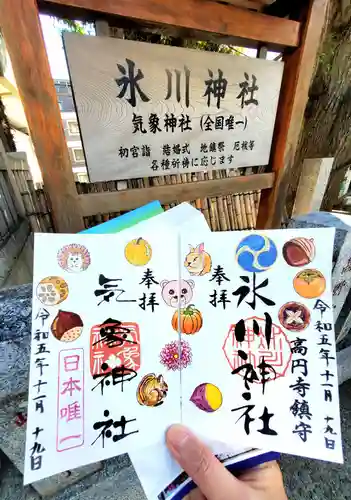 氷川神社
気象神社(全国唯一)
初宮詣・結婚式・地鎮祭・厄除
各種祈祷に応じます
奉拝
氷川神社
高円寺鎮守
令和五年十一月十九日
奉拝
気象神社
日本唯一
令和五年十一月十九日